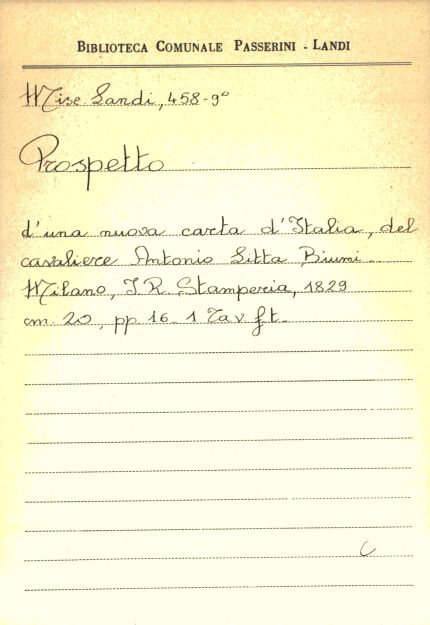 BIBLIOTECA COMUNALE PASSERINI - LANDI
Misc. Landi, 458-9°
Prospetto
d'una nuova carta d'Italia, del
cavaliere Antonio Litta Biumi.
Milano, I.R. Stamperia, 1829
cm. 20, pp. 16. 1 Tav. f.t.
C